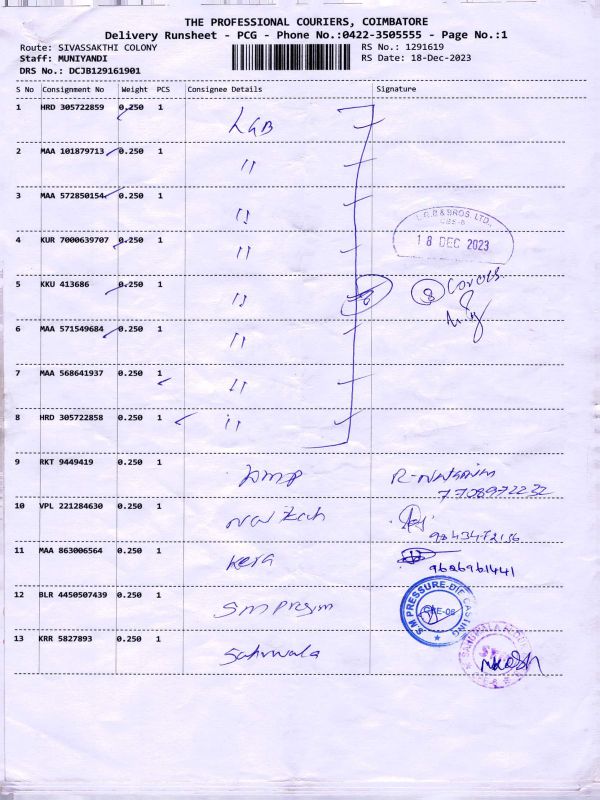 THE PROFESSIONAL COURIERS, COIMBATORE
Delivery Runsheet - PCG - Phone No.:0422-3505555 - Page No.:1
Route: SIVASSAKTHI COLONY
RS No.: 1291619
Staff: MUNIYANDI
RS Date: 18-Dec-2023
DRS No.: DCJB129161901
S No Consignment No Weight PCS Consignee Details Signature
1 HRD 305722859 0.250 1 LGB
2 MAA 101879713 0.250 1 "
3 MAA 572850154 0.250 1 "
L.G.B & BROS. LTD.,
18 DEC 2023
4 KUR 7000639707 0.250 1 "
5 KKU 413686 0.250 1 " 8 8 Covers
6 MAA 571549684 0.250 1 "
7 MAA 568641937 0.250 1 "
8 HRD 305722858 0.250 1 "
9 RKT 9449419 0.250 1
7708972232
10 VPL 221284630 0.250 1
9843472156
11 MAA 863006564 0.250 1 Kera
9626961441
12 BLR 4450507439 0.250 1 S M Pressim
S.M PRESSURE DIE CASTING
13 KRR 5827893 0.250 1